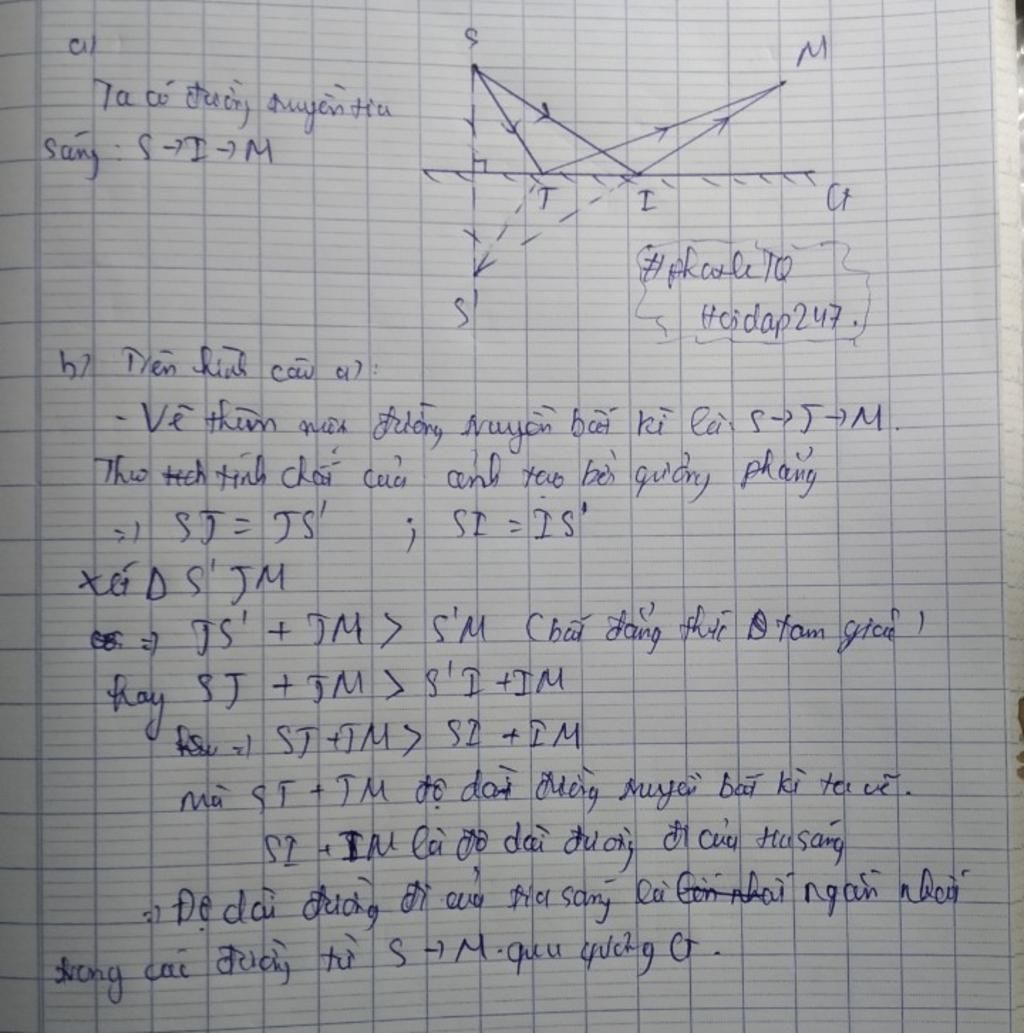 a)
S
M
Ta có đường truyền tia
sáng: S → I → M
J I G
S'
Hoidap247.
b) Trên hình câu a):
- Vẽ thêm một đường truyền bất kì là S → J → M.
Theo tính chất của ảnh tạo bởi gương phẳng
=> SJ = JS' ; SI = IS'
Xét Δ S'JM
=> JS' + JM > S'M (bất đẳng thức Δ tam giác)
hay SJ + JM > S'I + IM
=> SJ + JM > SI + IM
mà SJ + JM độ dài đường truyền bất kì ta vẽ.
SI + IM là độ dài đường đi của tia sáng
=> Độ dài đường đi của tia sáng là ngắn nhất
trong các đường từ S → M qua gương G.